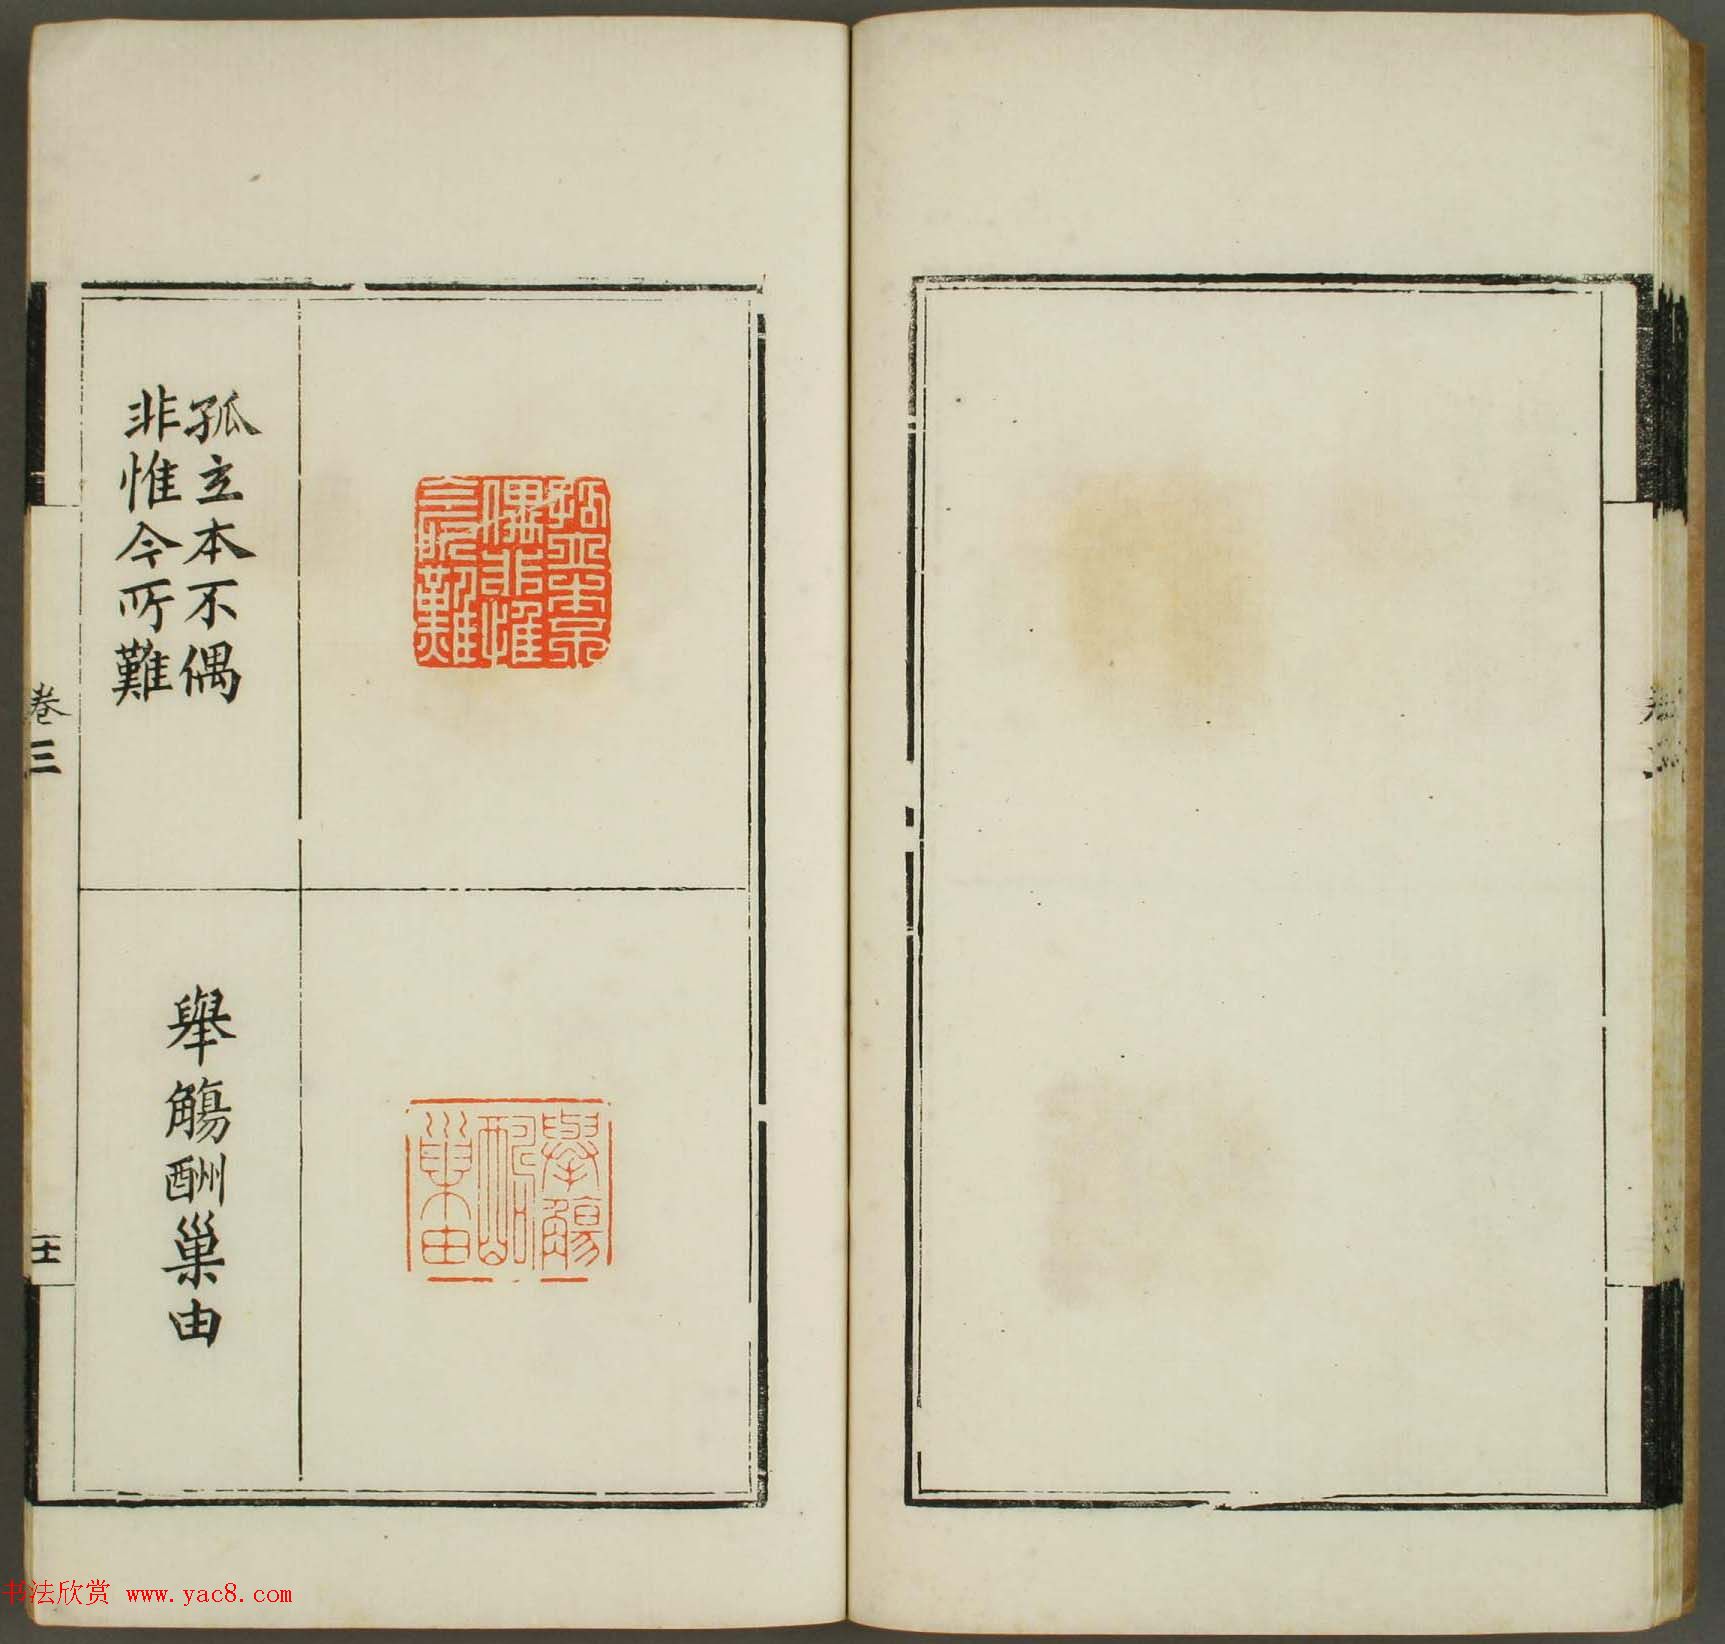 孤立本不偶
非惟今所難
孤立本不
偶非惟
今所難
舉觴酬巢由
舉觴
酬
巢由
卷三
十二
卷三
书法欣赏 www.yac8.com